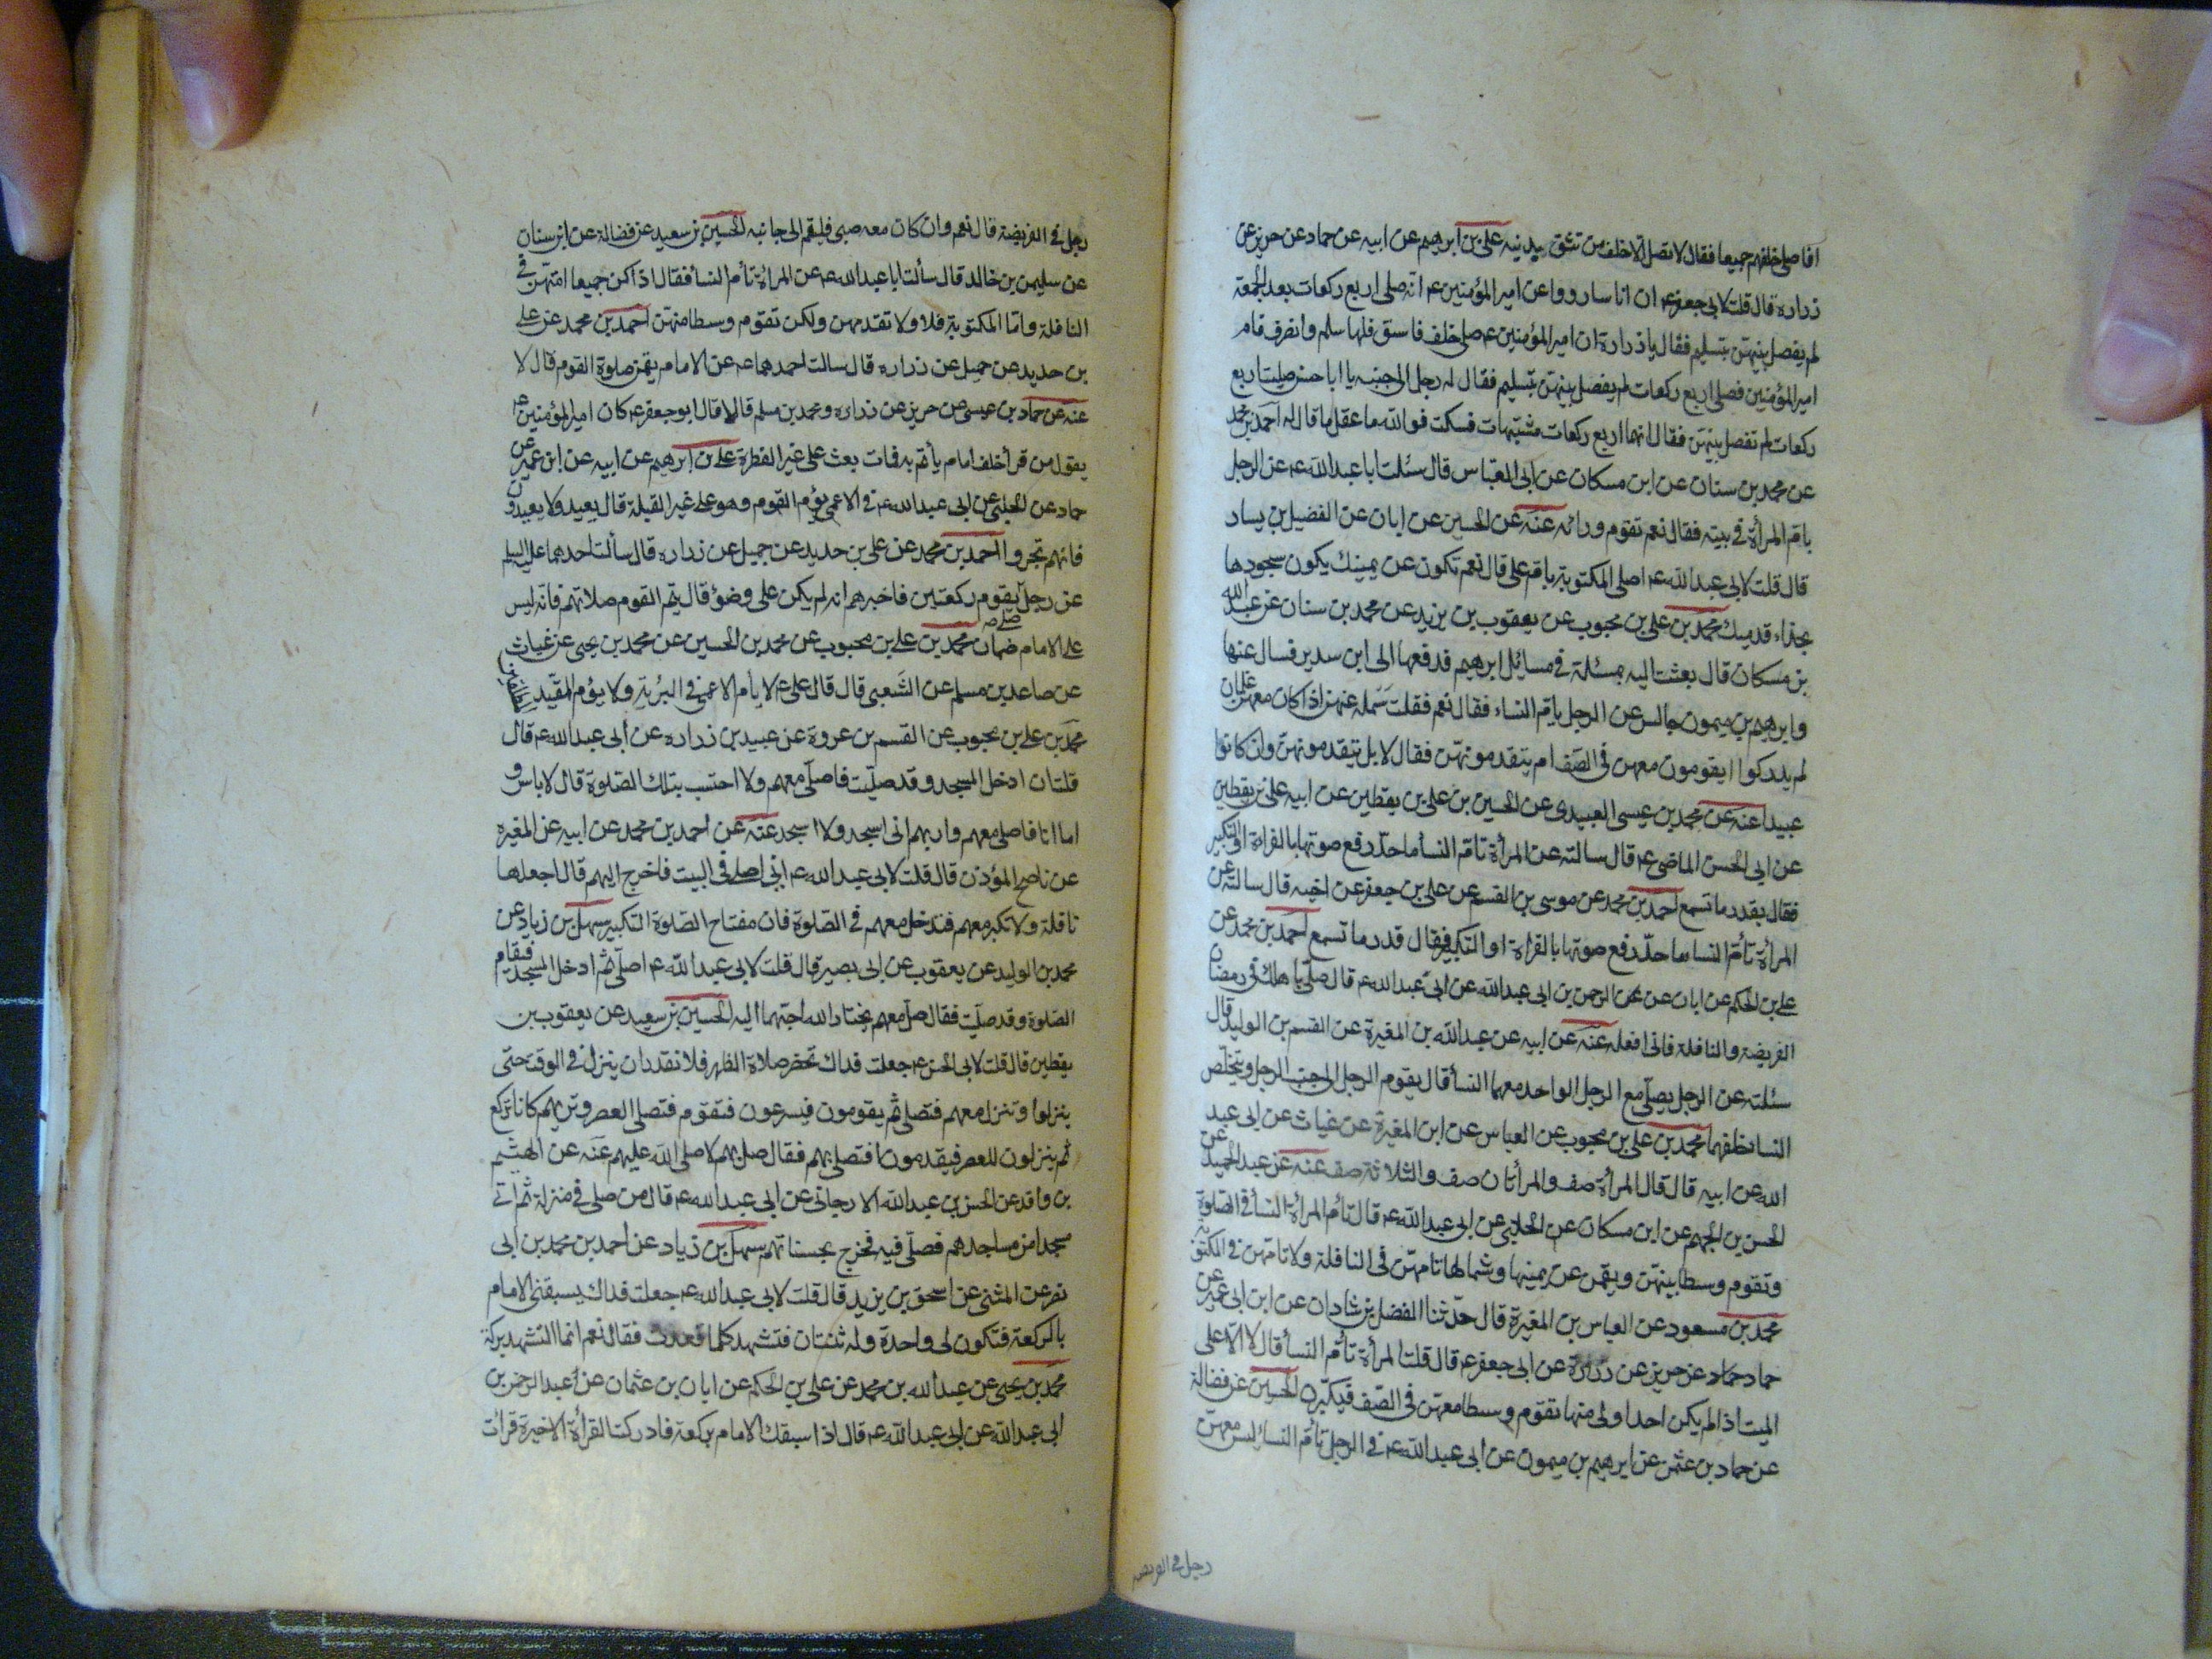 افاصلی خلفهم جمیعا فقال لا تصل الا خلف من تثق بدینه علی بن ابرهیم عن ابیه عن حماد عن حریز عن
زراره قال قلت لابی جعفر ع ان اناسا رووا عن امیر المؤمنین ع انه صلی اربع رکعات بعد الجمعة
لم یفصل بینهن بتسلیم فقال یا زرارة ان امیر المؤمنین ع صلی خلف فاسق فلما سلم وانصرف قام
امیر المؤمنین فصلی اربع رکعات لم یفصل بینهن بتسلیم فقال له رجل الی جنبه یا ابا حسن صلیت اربع
رکعات لم تفصل بینهن فقال انها اربع رکعات مشتبهات فسکت فوالله ما عقل ما قال له احمد بن محمد
عن محمد بن سنان عن ابن مسکان عن ابی العباس قال سئلت ابا عبدالله ع عن الرجل
یاقم المرأة فی بیته فقال نعم تقوم ورائه عنه عن الحسین عن ابان عن الفضیل بن یسار
قال قلت لابی عبدالله ع اصلی المکتوبة بام علی قال نعم تکون عن یمینک یکون سجودها
بحذاء قدمیک محمد بن علی بن محبوب عن یعقوب بن یزید عن محمد بن سنان عن عبد الله
بن مسکان قال بعثت الیه بمسئلة فی مسائل ابرهیم فدفعها الی ابن سدیر فسال عنها
وابرهیم بن میمون جالس عن الرجل یأم النساء فقال نعم فقلت سله عنهن اذا کان معهن غلمان
لم یدرکوا ایقومون معهن فی الصف ام یتقدمونهن فقال لا بل یتقدمونهن وان کانوا
عبیدا عنه عن محمد بن عیسی العبیدی عن الحسین بن علی بن یقطین عن ابیه علی بن یقطین
عن ابی الحسن الماضی ع قال سالته عن المرأة تأم النسأ ما حد رفع صوتها بالقراءة او التکبیر
فقال بقدر ما تسمع احمد بن محمد عن موسی بن القسم عن علی بن جعفر عن اخیه قال سالته عن
المرأة تأم النسا ما حد رفع صوتها بالقراءة او التکبیر فقال قدر ما تسمع احمد بن محمد عن
علی بن الحکم عن ابان عن عبد الرحمن بن ابی عبدالله عن ابی عبدالله ع قال صل باهلک فی رمضان
الفریضة والنافلة فانی افعله عنه عن ابیه عن عبدالله بن المغیرة عن القسم بن الولید قال
سئلته عن الرجل یصلی مع الرجل الواحد معهما النسأ قال یقوم الرجل الی جنب الرجل ویتخلص
النسا خلفهما محمد بن علی بن محبوب عن العباس عن ابن المغیرة عن غیاث عن ابی عبد
الله عن ابیه قال قال المرأة صف والمرأتان صف والثلاثة صف عنه عن عبد الحمید عن
الحسن بن الجهم عن ابن مسکان عن الحلبی عن ابی عبدالله ع قال تأم المرأة النسأ فی الصلوة
وتقوم وسطا بینهن ویقمن عن یمینها وشمالها تامهن فی النافلة ولا تامهن فی المکتوبة
محمد بن مسعود عن العباس بن المغیرة قال حدثنا الفضل بن شاذان عن ابن ابی عمیر عن
حماد حماد عن حریز عن زرارة عن ابی جعفر ع قال قلت المرأة تأم النسأ قال لا الا علی
المیت اذا لم یکن احد اولی منها تقوم وسطا معهن فی الصف فیکبرن الحسین عن فضالة
عن حماد بن عثمن عن ابرهیم بن میمون عن ابی عبدالله ع فی الرجل یأم النسا لیس معهن
رجل فی الفریضه
رجل فی الفریضة قال نعم وان کان معه صبی فلیقم الی جانبه الحسین بن سعید عن فضالة عن ابن سنان
عن سلیمن بن خالد قال سألت ابا عبدالله ع عن المرأة تأم النسأ فقال اذا کن جمیعا امتهن فی
النافلة واما المکتوبة فلا ولا تقدمهن ولکن تقوم وسطا منهن احمد بن محمد عن علی
بن حدید عن جمیل عن زراره قال سالت احدهما ع عن الامام یضمن صلوة القوم قال لا
عنه عن حماد بن عیسی عن حریز عن زراره ومحمد بن مسلم قالا قال ابو جعفر ع کان امیر المؤمنین ع
یقول من قرأ خلف امام یأتم به فمات بعث علی غیر الفطرة علی بن ابرهیم عن ابیه عن ابن ابی عمیر عن
حماد عن الحلبی عن ابی عبدالله ع فی الاعمی یؤم القوم وهو علی غیر القبلة قال یعید ولا یعیدون
فانهم تحروا احمد بن محمد عن علی بن حدید عن جمیل عن زراره قال سألت احدهما علیه السلم
عن رجل یقوم رکعتین فاخبرهم انه لم یکن علی وضؤ قال یتم القوم صلاتهم فانه لیس
علی الامام ضمان محمد بن علی بن محبوب عن محمد بن الحسین عن محمد بن یحیی عن غیاث
عن صاعد بن مسلم عن الشعبی قال قال علی ع لا یأم الاعمی فی البریة ولا یؤم المقید
محمد بن علی بن محبوب عن القسم بن عروة عن عبید بن زراره عن أبی عبدالله ع قال
قلت ان ادخل المسجد وقد صلیت فاصلی معهم ولا احتسب بتلک الصلوة قال لا باس و
اما انا فاصلی معهم واریهم انی اسجد ولا اسجد عنه عن احمد بن محمد عن ابیه عن المغیره
عن ناصح المؤذن قال قلت لابی عبدالله ع انی اصلی فی البیت فاخرج الیهم قال اجعلها
نافلة ولا تکبر معهم فتدخل معهم فی الصلوة فان مفتاح الصلوة التکبیر سهل بن زیاد عن
محمد بن الولید عن یعقوب عن ابی بصیر قال قلت لابی عبدالله ع اصلی ثم ادخل المسجد فیقام
الصلوة وقد صلیت فقال صل معهم یختار الله احبهما الیه الحسین بن سعید عن یعقوب بن
یقطین قال قلت لابی الحسن ع جعلت فداک تحضر صلاة الظهر فلا نقدر ان ینزل فی الوقت حتی
ینزلوا وتنزل معهم فتصلی ثم یقومون فیسرعون فتقوم فتصلی العصر وتریهم کانا نرکع
ثم ینزلون للعصر فیقدمونا فتصلی بهم فقال صل بهم لا صلی الله علیهم عنه عن الهیثم
بن واقد عن الحسن بن عبدالله الارجانی عن ابی عبدالله ع قال من صلی فی منزله ثم اتی
مسجدا من مساجدهم فصلی فیه فخرج بحسناتهم سهل بن زیاد عن احمد بن محمد بن ابی
نصر عن المثنی عن اسحق بن یزید قال قلت لابی عبدالله ع جعلت فداک یسبقنی الامام
بالرکعة فتکون لی واحدة وله ثنتان فتشهد کلما قعدت فقال نعم انما التشهد برکة
محمد بن یحیی عن عبدالله بن محمد عن علی بن الحکم عن ابان بن عثمان عن عبد الرحمن بن
ابی عبدالله عن ابی عبدالله ع قال اذا سبقک الامام برکعة فادرکت القرأة الاخیرة قرأت